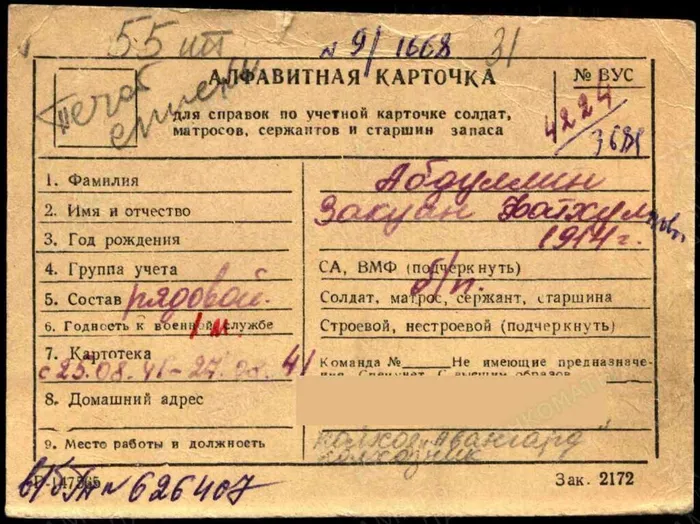 55 шт
N 9/1668 31
АЛФАВИТНАЯ КАРТОЧКА
№ ВУС
для справок по учетной карточке солдат,
матросов, сержантов и старшин запаса
4224
3684
1. Фамилия Абдуллин
2. Имя и отчество Закуан
3. Год рождения 1914 г.
4. Группа учета СА, ВМФ (подчеркнуть)
5. Состав рядовой. б/п. Солдат, матрос, сержант, старшина
6. Годность к военной службе Строевой, нестроевой (подчеркнуть)
7. Картотека Команда № Не имеющие предназначе-
с 25.08.41-27.08.41
8. Домашний адрес
колхоз "Авангард"
9. Место работы и должность колхозник
N 626407
Зак. 2172